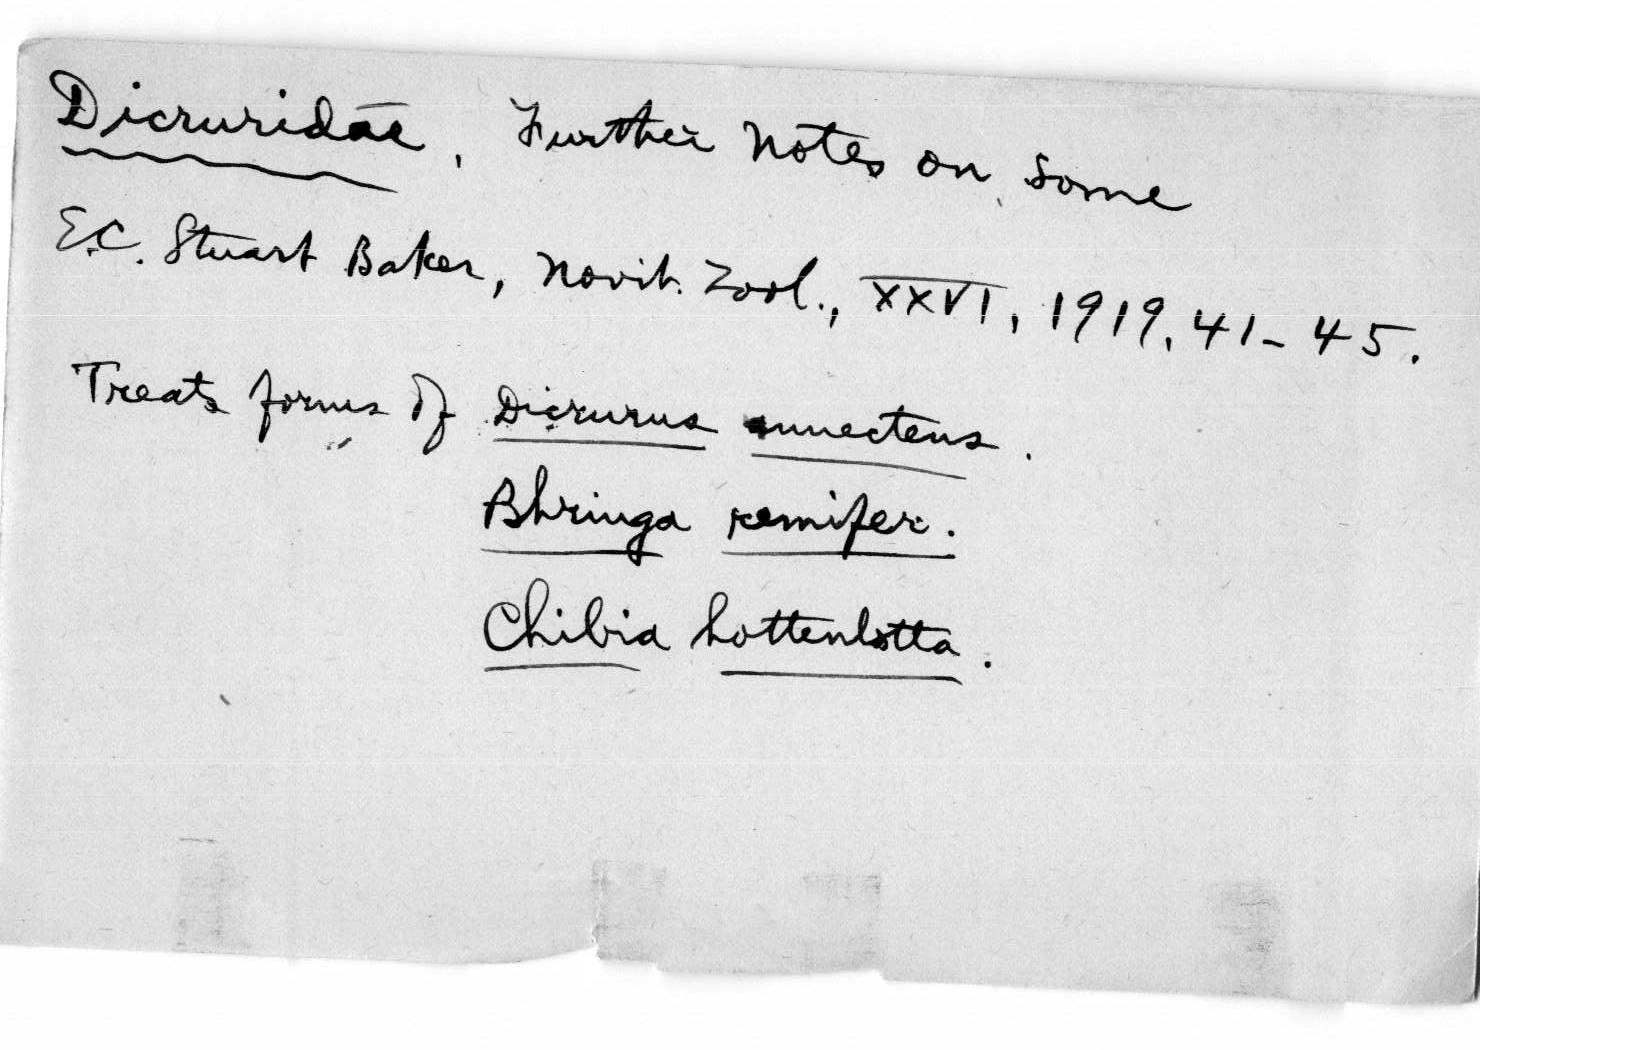 Dicruridae, Further Notes on some
E.C. Stuart Baker, Novit. Zool., XXVI, 1919, 41-45.
Treats forms of Dicrurus annectens.
Bhringa remifer.
Chibia hottentotta.